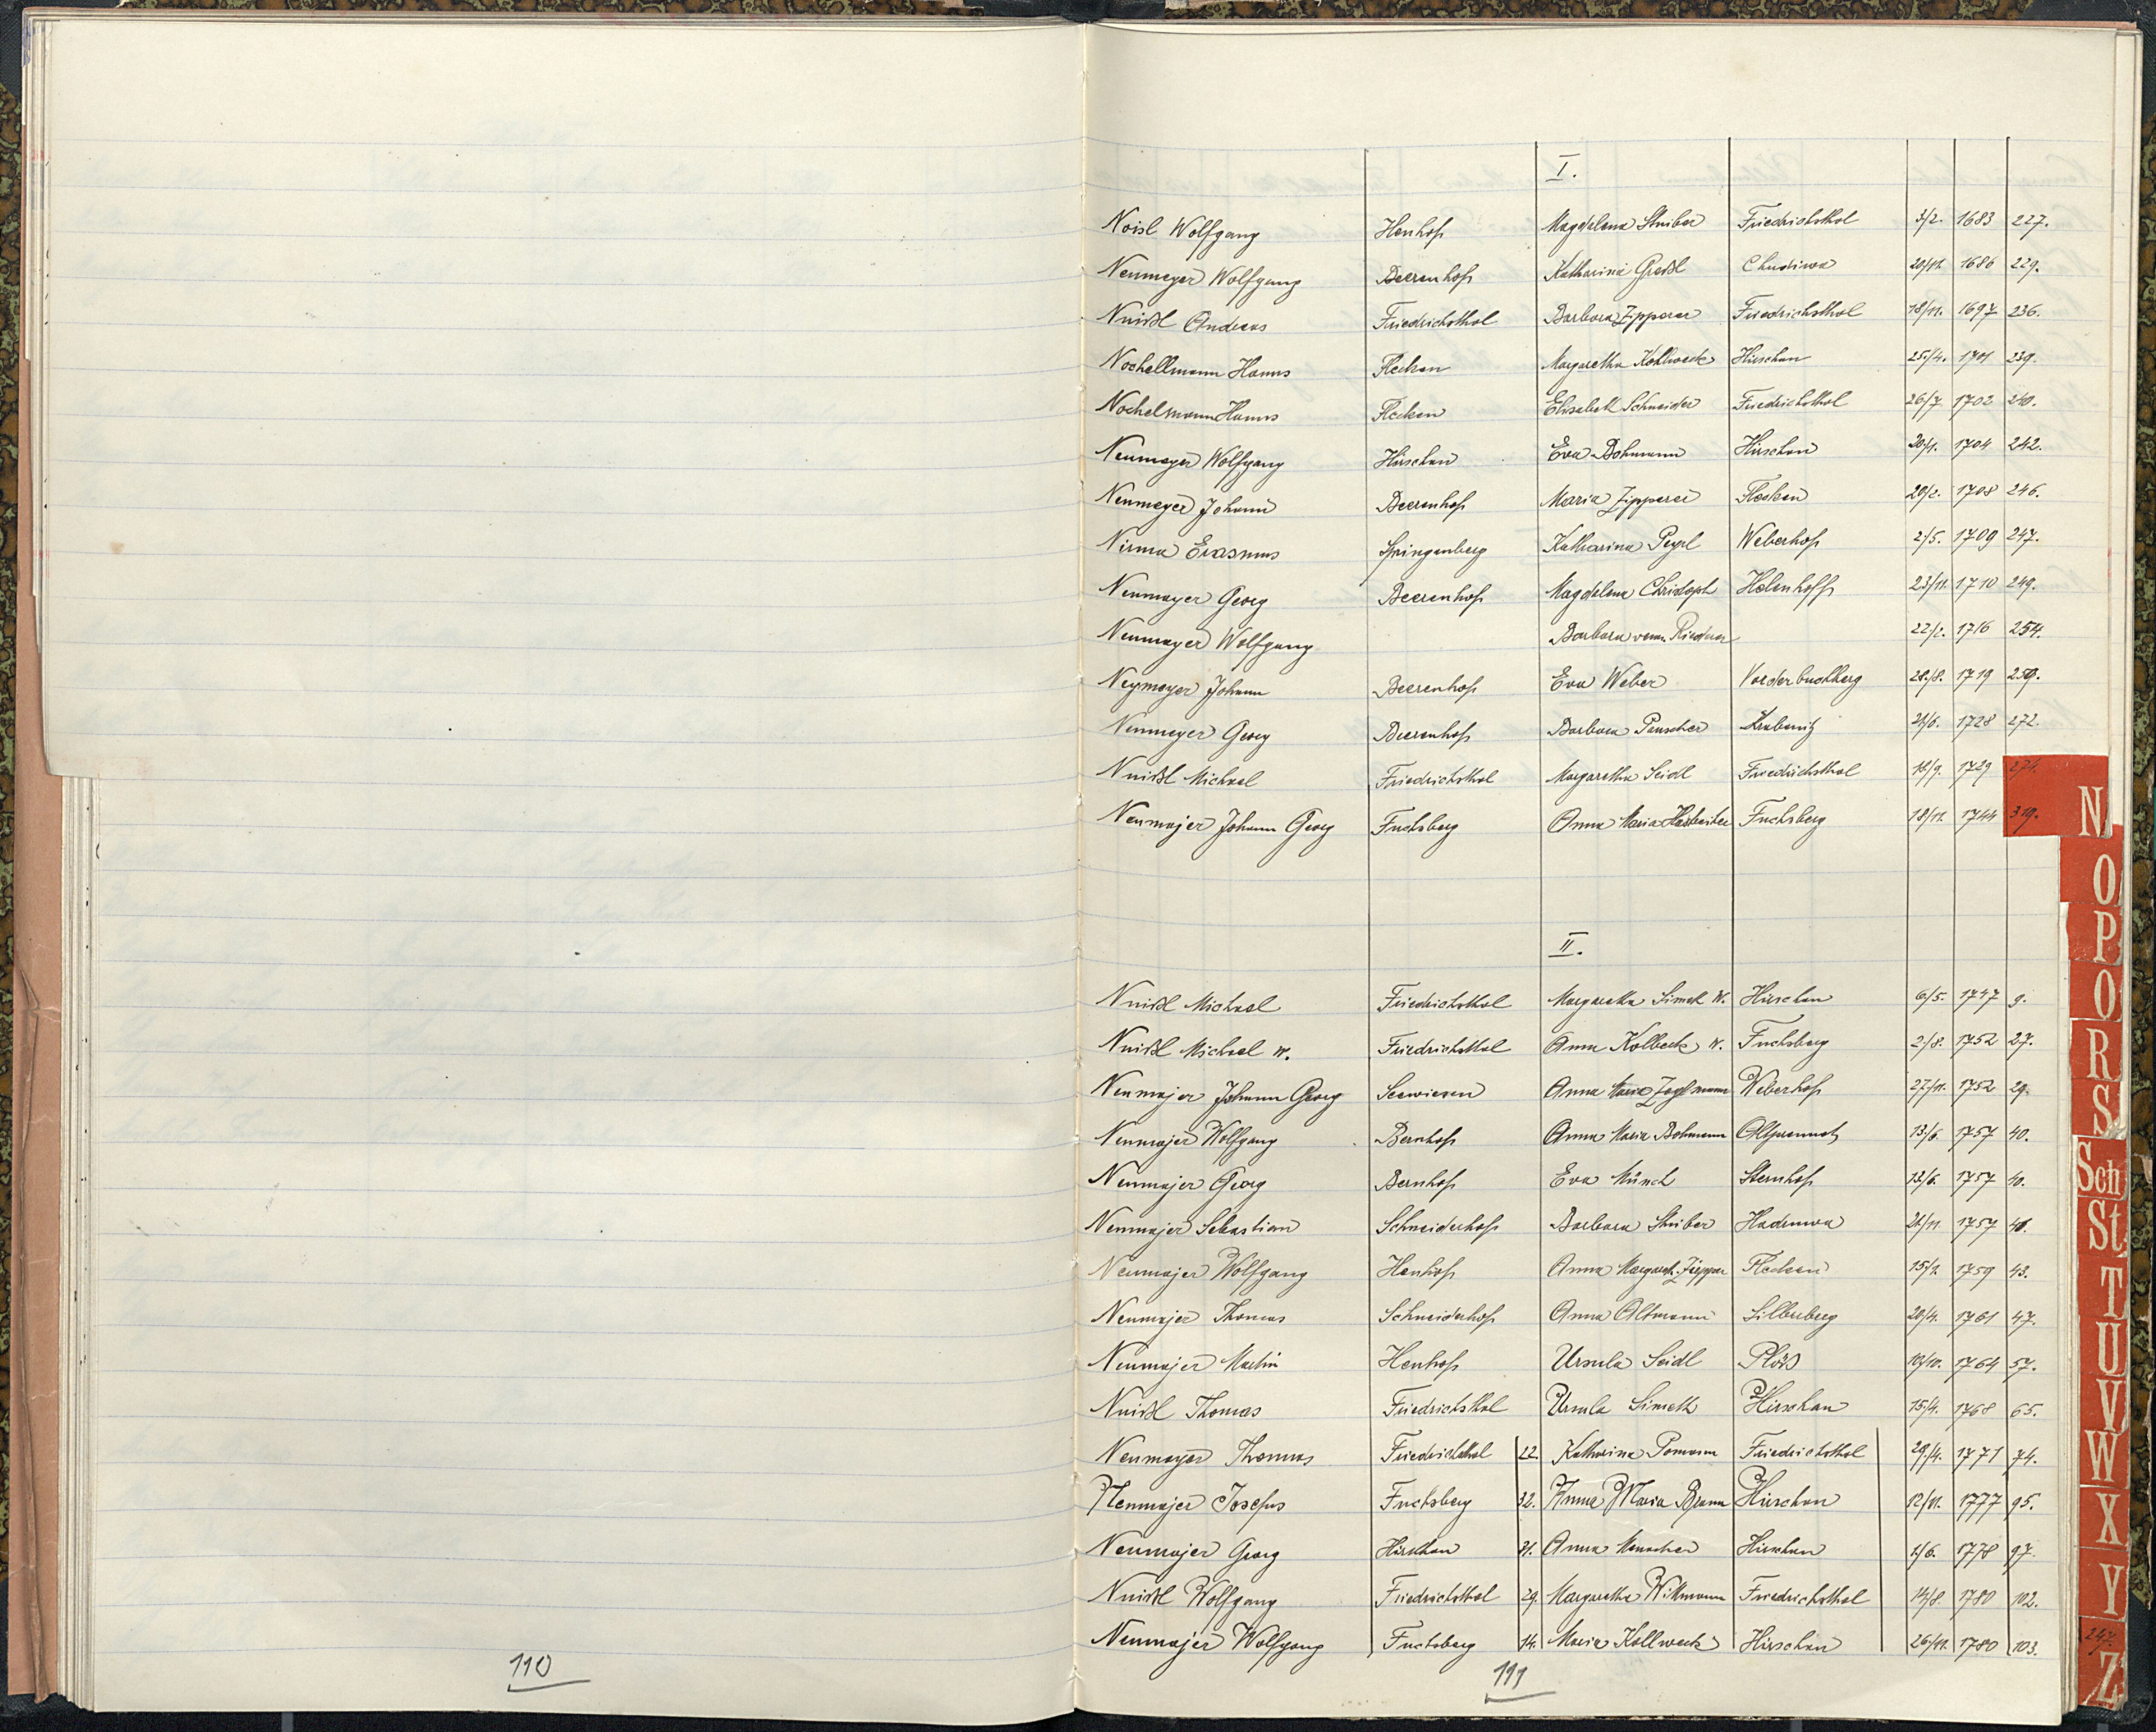 I.
Noisl Wolfgang Henhof Magdalena Stuiber Friedrichsthal 3/2. 1683 227.
Neumeyer Wolfgang Beerenhof Katharina Greßl Chudiwa 20/11. 1686 229.
Nuißl Andreas Friedrichsthal Barbara Zipperer Friedrichsthal 18/11. 1697 236.
Nochellmann Hanns Flecken Margaretha Kohlweck Hirschau 25./4. 1701 239.
Nochelmann Hanns Flecken Elisabeth Schneider Friedrichsthal 26/7 1702 240.
Neumayer Wolfgang Hirschau Eva Bohmann Hirschau 20/1. 1704 242.
Neumeyer Johann Beerenhof Maria Zipperer Flecken 20/2. 1708 246.
Nirma Erasmus Springenberg Katharina Weberhof 2/5. 1709 247.
Neumayer Georg Beerenhof Magdalena Christoph Helenhoff 23/11. 1710 249.
Neumayer Wolfgang Barbara verw. Riederer 22/2. 1716 254.
Neymayer Johann Beerenhof Eva Weber Vorderbuchberg 28./8. 1719 259.
Neumeyer Georg Beerenhof Barbara Pauscher 21/6. 1728 272.
Nuißl Michael Friedrichsthal Margaretha Seidl Friedrichsthal 18/9. 1729 274.
Neumajer Johann Georg Fuchsberg Anna Maria Fuchsberg 18/11. 1744 319.
II.
Nuißl Michael Friedrichsthal Margaretha Simeth W. Hirschau 6/5. 1747 9.
Nuißl Michael W. Friedrichsthal Anna Kolbeck W. Fuchsberg 2/8. 1752 27.
Neumajer Johann Georg Seewiesen Anna Maria Zoglmann Weberhof 27/11. 1752 29.
Neumajer Wolfgang Bernhof Anna Maria Bohmann 13/6. 1757 40.
Neumajer Georg Bernhof Eva Münch Sternhof 12/6. 1757 40.
Neumajer Sebastian Schneiderhof Barbara Stuiber Hadruwa 21/11. 1757
Neumajer Wolfgang Henhof Anna Margareth. Zipper Flecken 15/2. 1759 43.
Neumajer Thomas Schneiderhof Anna Altmann Silberberg 20/4. 1761 47.
Neumajer Martin Henhof Ursula Seidl Plöß 10/10. 1764 57.
Nuißl Thomas Friedrichsthal Ursula Simeth Hirschau 15/4. 1768 65.
Neumayer Thomas Friedrichsthal 22. Katharina Pomann Friedrichsthal 29/4. 1771 74.
Neumajer Josefus Fuchsberg 32. Anna Maria Braun Hirschau 12/11. 1777 95.
Neumajer Georg Hirschau 21. Anna Hirschau 1/6. 1778 97.
Nuißl Wolfgang Friedrichsthal 29. Margaretha Wittmann Friedrichsthal 14/8. 1780 102.
Neumajer Wolfgang Fuchsberg 14. Maria Kollweck Hirschau 26/11. 1780 103.
110
111
N
O
P
Q
R
S
Sch
St
T
U
V
W
X
Y
Z
247.